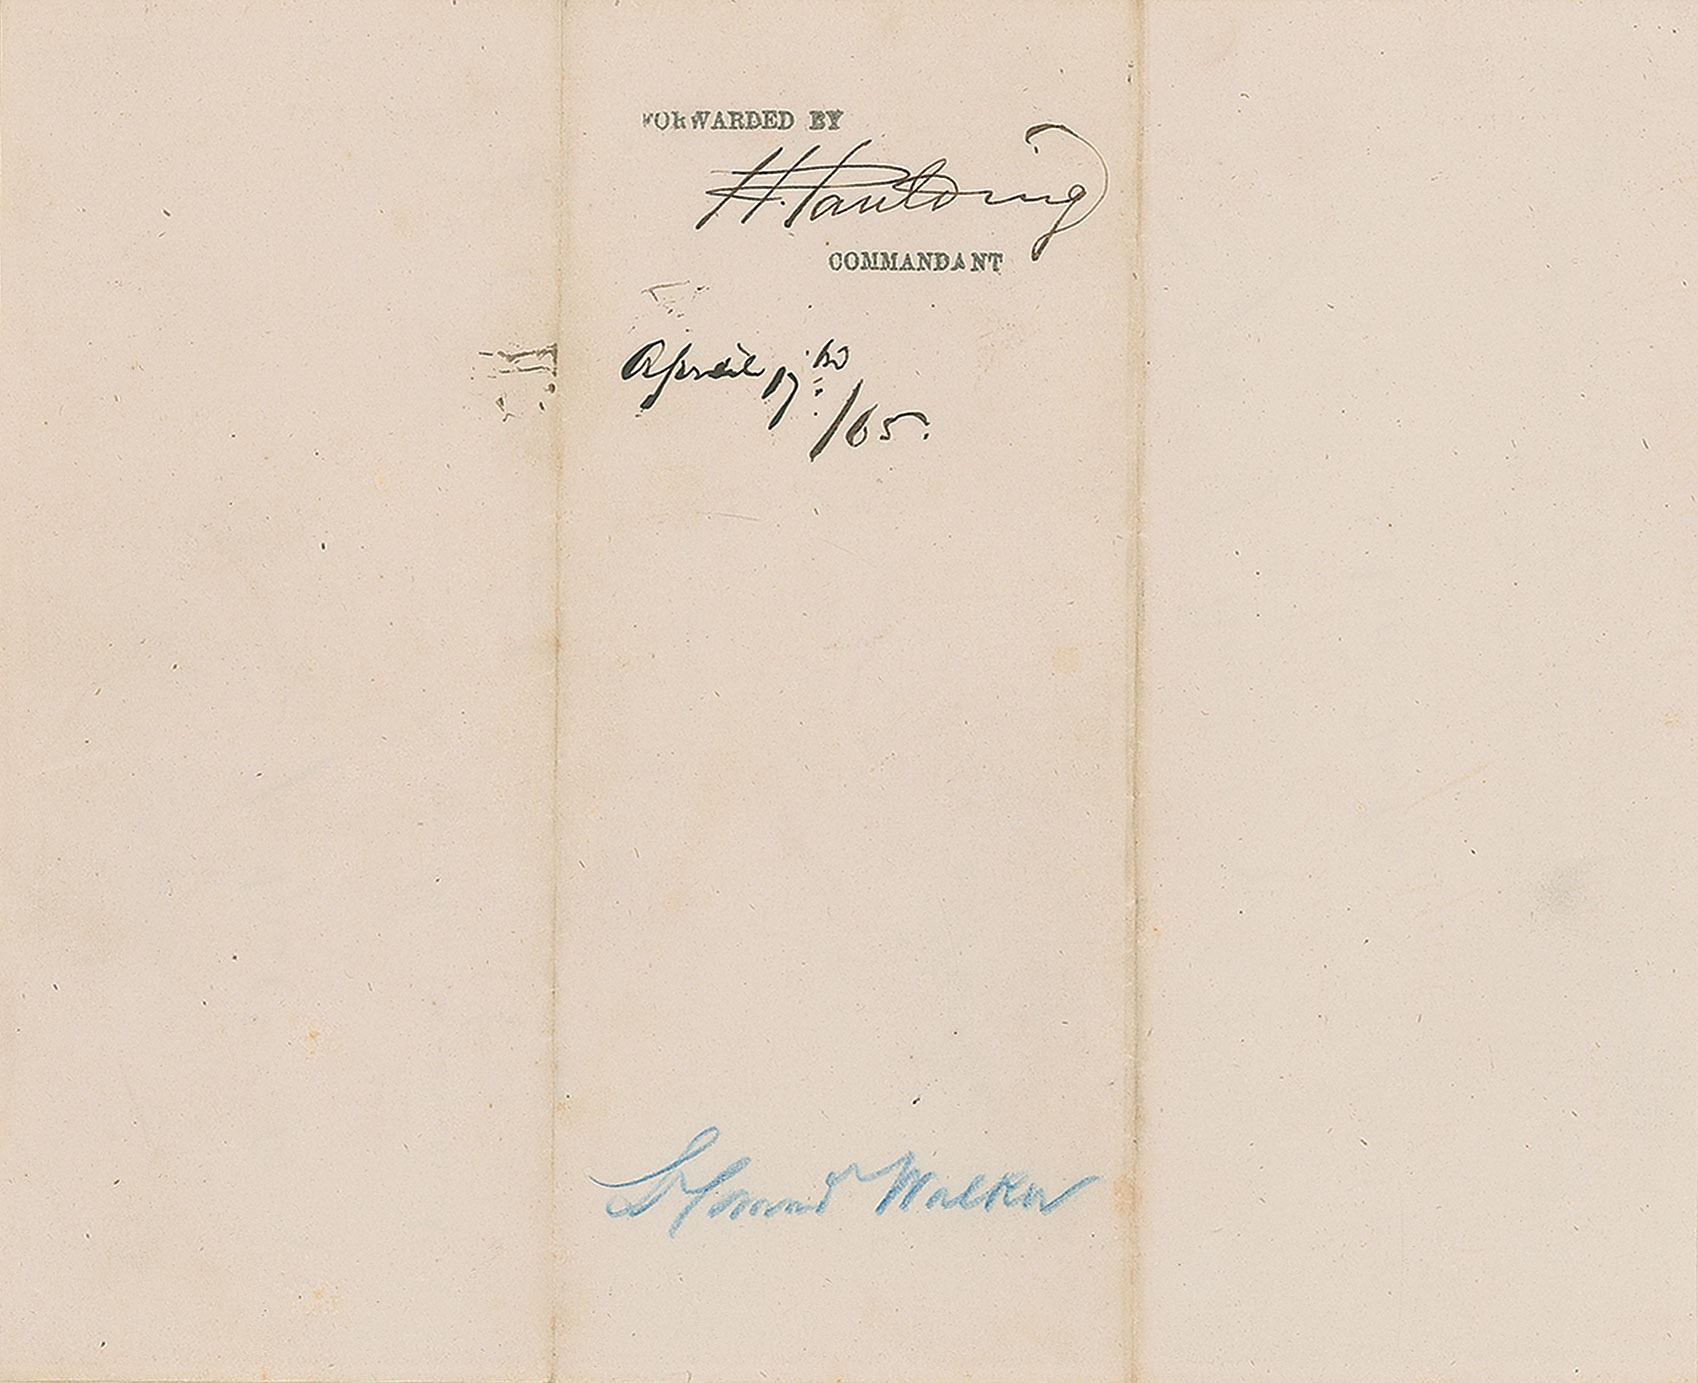 FORWARDED BY
H. Paulding
COMMANDANT
April 17th
/65.
Walker